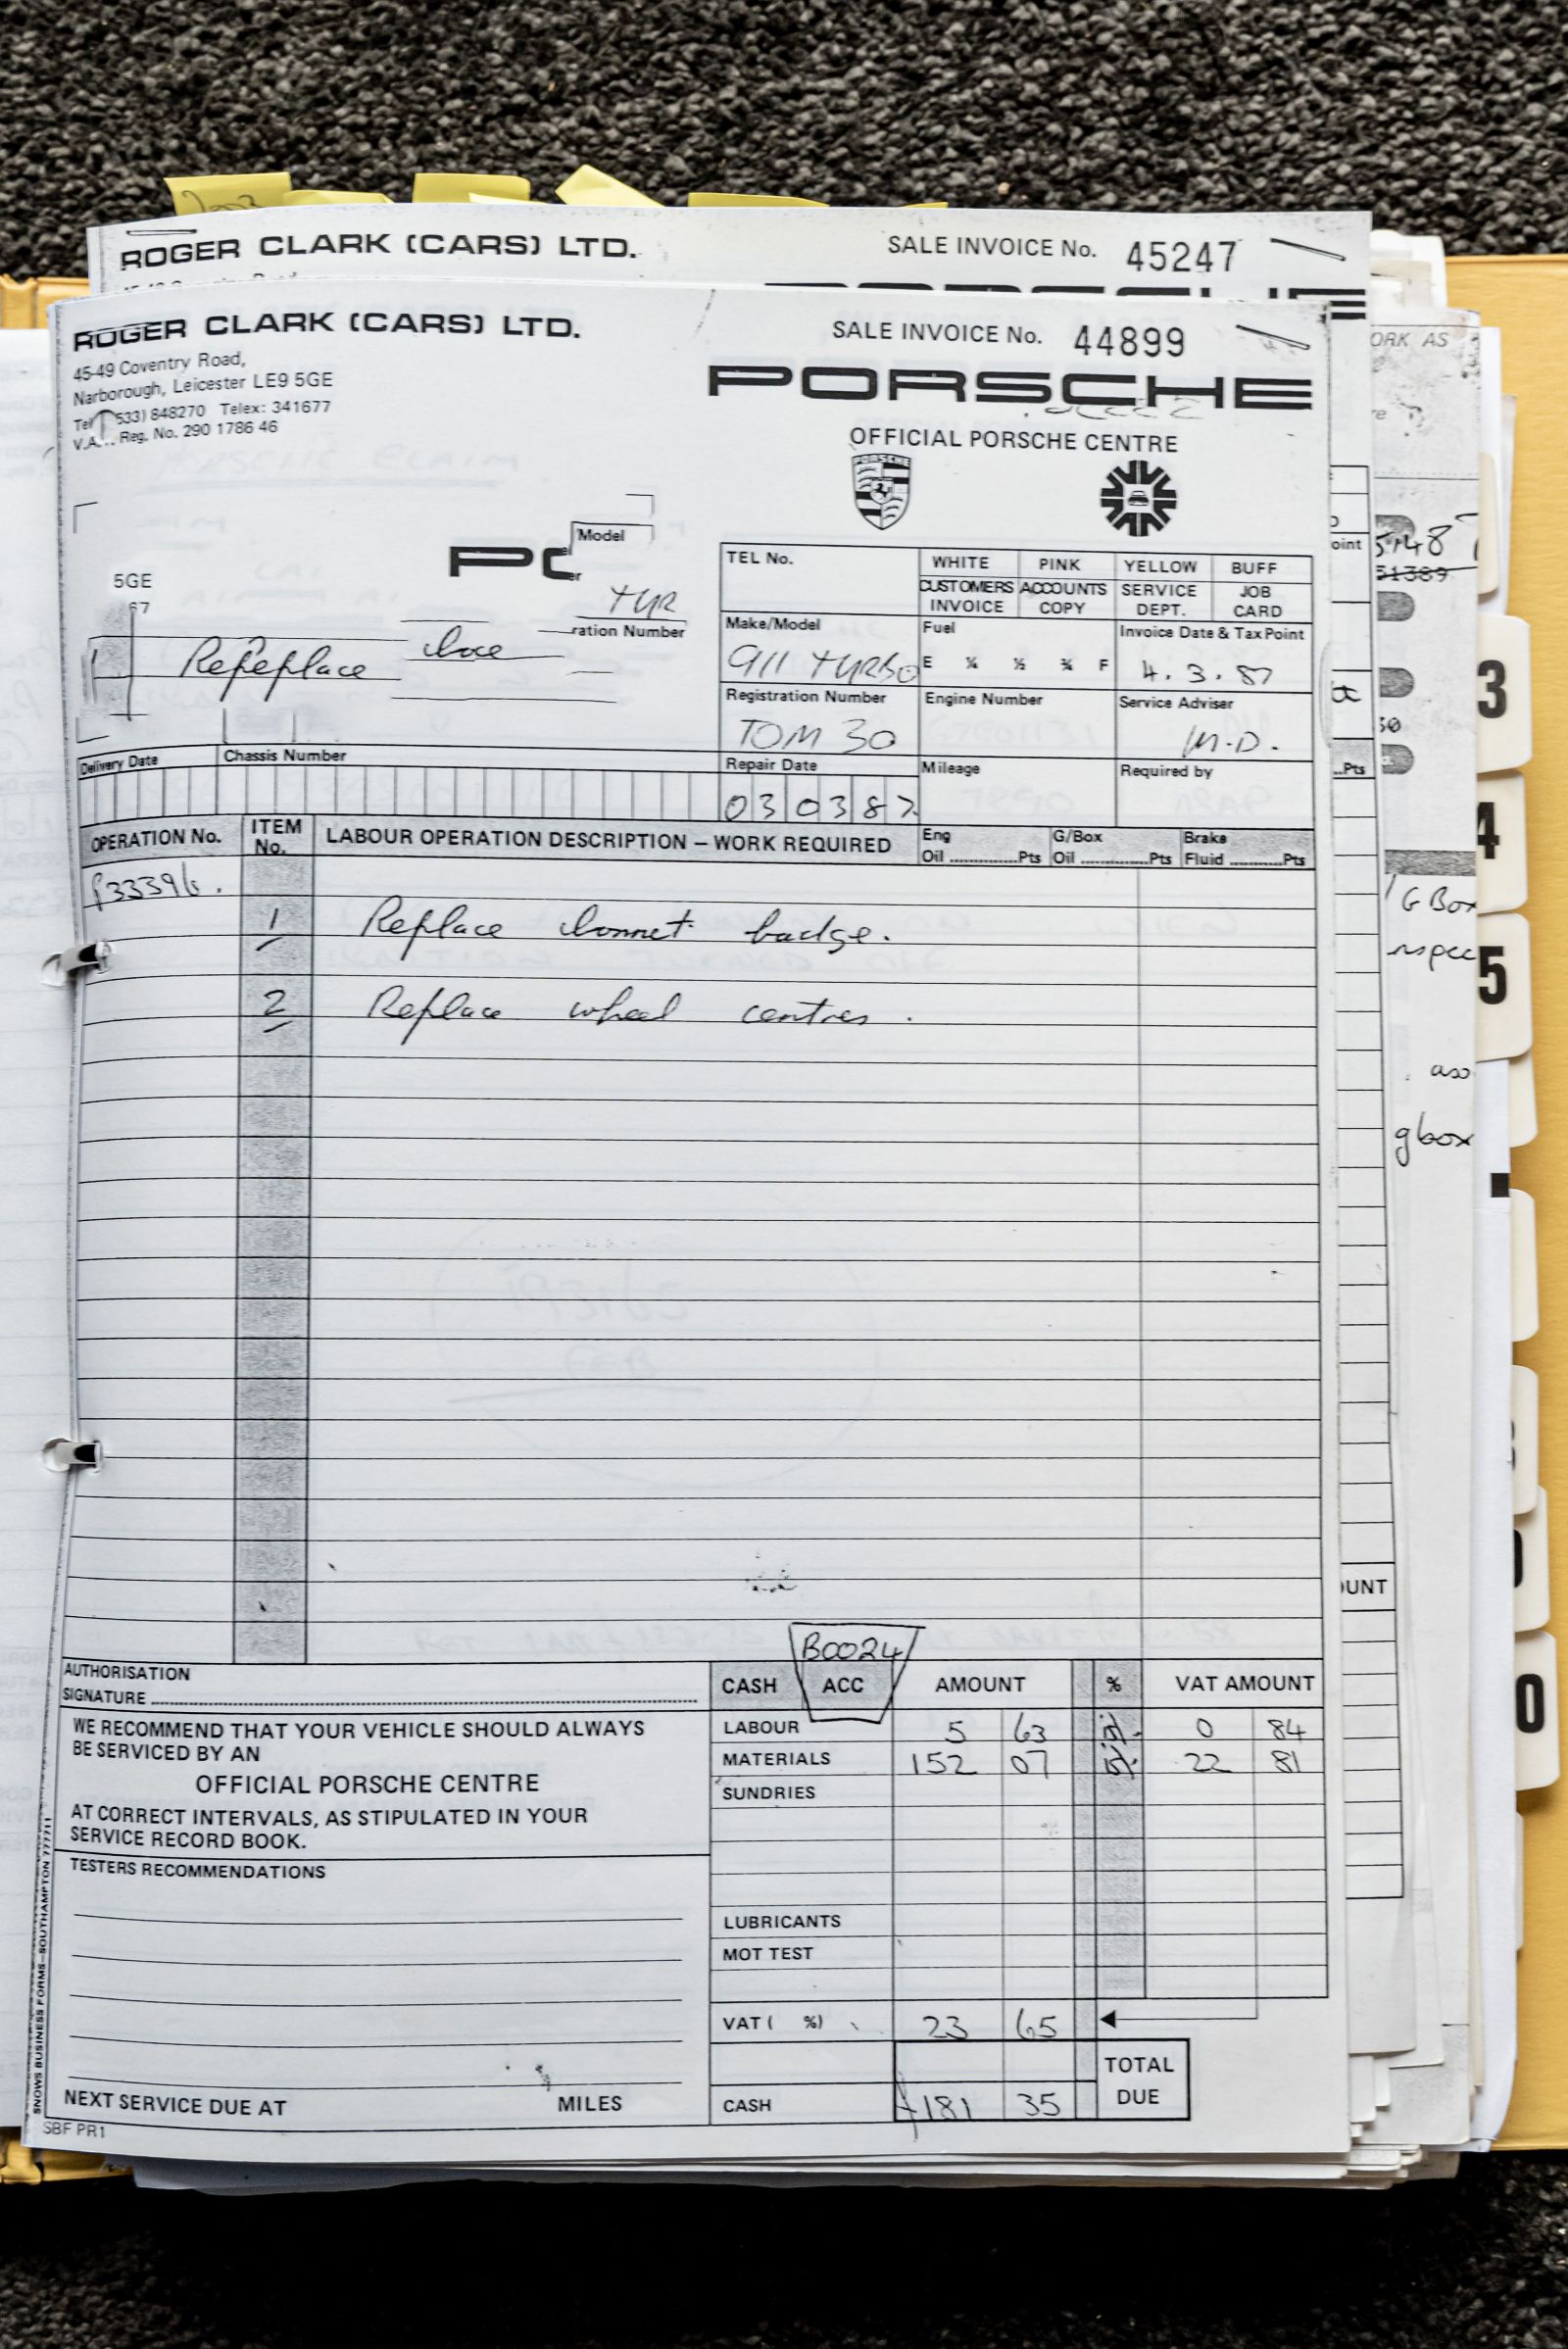 ROGER CLARK (CARS) LTD.
SALE INVOICE No. 45247
ROGER CLARK (CARS) LTD.
45-49 Coventry Road,
Narborough, Leicester LE9 5GE
533) 848270 Telex: 341677
Reg. No. 290 1786 46
SALE INVOICE No. 44899
PORSCHE
OFFICIAL PORSCHE CENTRE
PORSCHE
Model
5GE
67
TYR
ration Number
Repeplace
TEL No.
WHITE PINK YELLOW BUFF
CUSTOMERS INVOICE ACCOUNTS COPY SERVICE DEPT. JOB CARD
Make/Model Fuel Invoice Date & Tax Point
911 TURBO E ¼ ½ ¾ F 4.3.87
Registration Number Engine Number Service Adviser
TOM 30 M.D.
Delivery Date Chassis Number Repair Date Mileage Required by
030387
OPERATION No. ITEM No. LABOUR OPERATION DESCRIPTION – WORK REQUIRED Eng Oil ............Pts G/Box Oil ............Pts Brake Fluid ..........Pts
1 Replace bonnet badge.
2 Replace wheel centres.
B0024
AUTHORISATION
SIGNATURE
CASH ACC AMOUNT % VAT AMOUNT
LABOUR 5 63 15 0 84
MATERIALS 152 07 15 22 81
SUNDRIES
LUBRICANTS
MOT TEST
VAT ( %) 23 65
CASH £181 35 TOTAL DUE
WE RECOMMEND THAT YOUR VEHICLE SHOULD ALWAYS
BE SERVICED BY AN
OFFICIAL PORSCHE CENTRE
AT CORRECT INTERVALS, AS STIPULATED IN YOUR
SERVICE RECORD BOOK.
TESTERS RECOMMENDATIONS
NEXT SERVICE DUE AT MILES
SBF PR1
SNOWS BUSINESS FORMS–SOUTHAMPTON 777711
ORK AS
oint
5148
51389
Pts
G Box
gbox
3
4
5
0